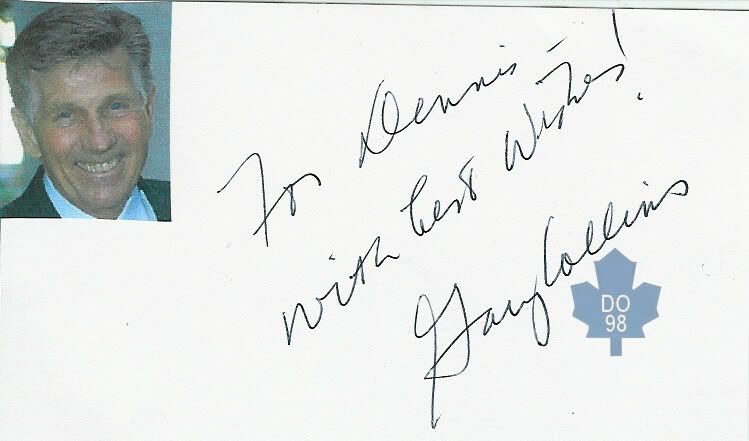 For Dennis -
with best Wishes!
Gary Collins
DO
98